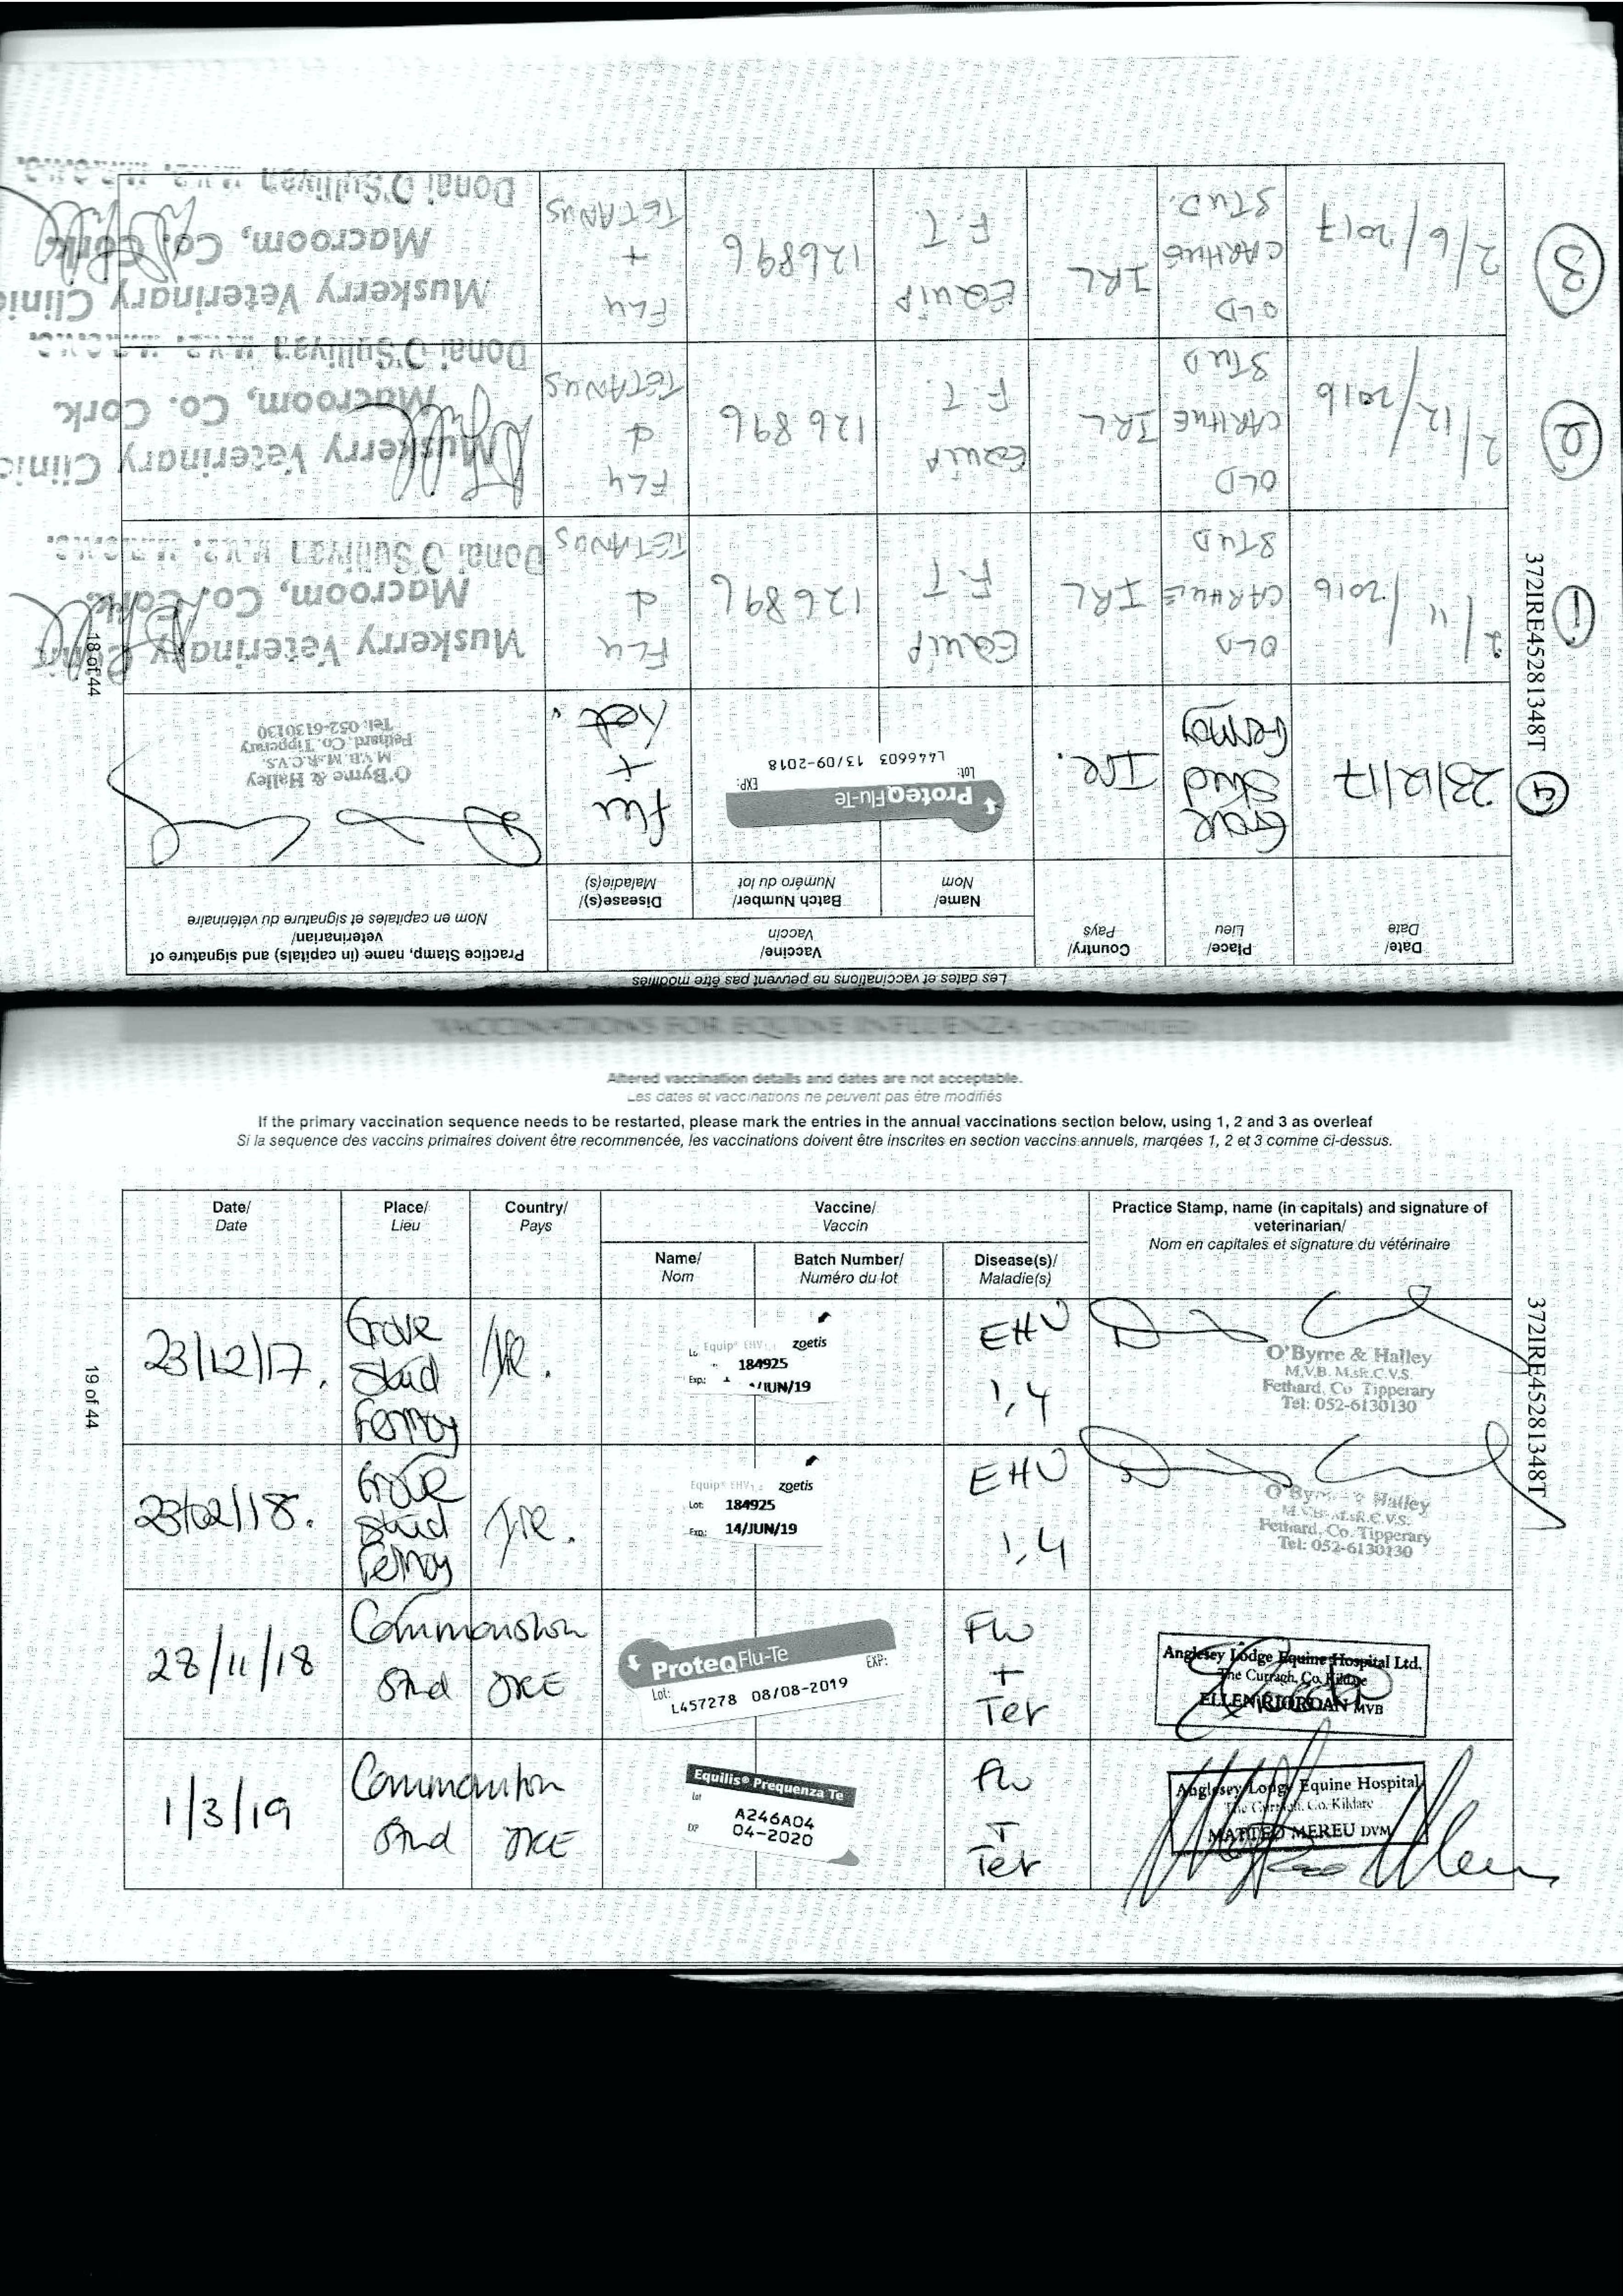 Les dates et vaccinations ne peuvent pas être modifiés
Date/
Date
Place/
Lieu
Country/
Pays
Vaccine/
Vaccin
Practice Stamp, name (in capitals) and signature of
veterinarian/
Nom en capitales et signature du vétérinaire
Name/
Nom
Batch Number/
Numéro du lot
Disease(s)/
Maladie(s)
4
23/12/17
Grove
Stud
Fermoy
Ire.
ProteqFlu-Te
Lot: EXP:
L446603 13/09-2018
Flu
+
Tet.
O'Byrne & Halley
M.V.B. M.sR.C.V.S.
Fethard, Co. Tipperary
Tel: 052-6130130
1
2/11/2016
OLD
CARHUE
STUD
IRL
EQUIP
F.T
126896
FLU
&
TETANUS
Muskerry Veterinary Clinic
Macroom, Co. Cork.
Donal O'Sullivan
2
2/12/2016
OLD
CARHUE
STUD
IRL
EQUIP
F.T.
126896
FLU
&
TETANUS
Muskerry Veterinary Clinic
Macroom, Co. Cork.
Donal O'Sullivan
3
2/6/2017
OLD
CARHUE
STUD.
IRL
EQUIP
F.T.
126896
FLU
+
TETANUS
Muskerry Veterinary Clinic
Macroom, Co. Cork.
Donal O'Sullivan
372IRE45281348T
18 of 44
VACCINATIONS FOR EQUINE INFLUENZA - CONTINUED
Altered vaccination details and dates are not acceptable.
Les dates et vaccinations ne peuvent pas être modifiés
If the primary vaccination sequence needs to be restarted, please mark the entries in the annual vaccinations section below, using 1, 2 and 3 as overleaf
Si la sequence des vaccins primaires doivent être recommencée, les vaccinations doivent être inscrites en section vaccins annuels, marqées 1, 2 et 3 comme ci-dessus.
Date/
Date
Place/
Lieu
Country/
Pays
Vaccine/
Vaccin
Practice Stamp, name (in capitals) and signature of
veterinarian/
Nom en capitales et signature du vétérinaire
Name/
Nom
Batch Number/
Numéro du lot
Disease(s)/
Maladie(s)
23/12/17.
Grove
Stud
Fermoy
Ire.
Equip® EHV1,4 zoetis
184925
Exp: /JUN/19
EHV
1,4
O'Byrne & Halley
M.V.B. M.sR.C.V.S.
Fethard, Co Tipperary
Tel: 052-6130130
23/02/18.
Grove
Stud
Fermoy
Ire.
Equip® EHV1,4 zoetis
Lot: 184925
Exp: 14/JUN/19
EHV
1,4
O'Byrne & Halley
M.V.B. M.sR.C.V.S.
Fethard, Co. Tipperary
Tel: 052-6130130
28/11/18
Commonstown
Stud IRE
ProteqFlu-Te
Lot: EXP:
L457278 08/08-2019
Flu
+
Tet
Anglesey Lodge Equine Hospital Ltd.
The Curragh, Co. Kildare
ELLEN RIORDAN MVB
1/3/19
Commonstown
Stud IRE
Equilis® Prequenza Te
Lot
A246A04
EXP 04-2020
Flu
+
Tet
Anglesey Lodge Equine Hospital
The Curragh, Co. Kildare
MATTEO MEREU DVM
372IRE45281348T
19 of 44